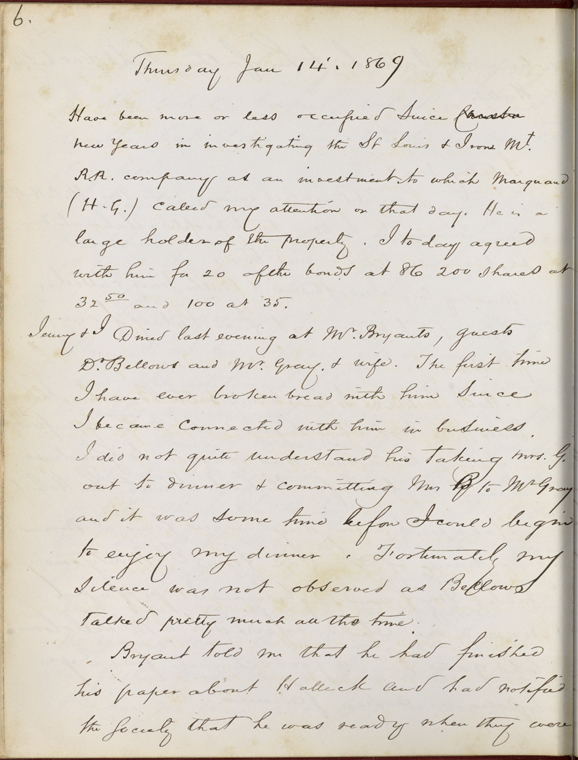 6.
Thursday Jan 14. 1869
Have been more or less occupied Since
new Years in investigating the St Louis & Iron Mt.
R.R. company as an investment to which Marquand
(H.G.) called my attention on that day. He is a
large holder of the property. I to day agreed
with him for 20 of the bonds at 86 200 shares at
32 50 and 100 at 35.
Jenny & I Dined last evening at Mr. Bryants, guests
Dr. Bellows and Mr. Gray & wife. The first time
I have ever broken bread with him Since
I became connected with him in business.
I did not quite understand his taking Mrs. G.
out to dinner & committing Mrs B to Mr Gray
and it was some time before I could begin
to enjoy my dinner. Fortunately my
Silence was not observed as Bellows
talked pretty much all the time.
Bryant told me that he had finished
his paper about Halleck and had notified
the Society that he was ready when they were